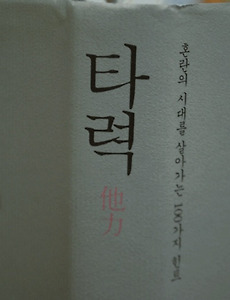 타력
他力
혼란의 시대를 살아가는 100가지 힌트